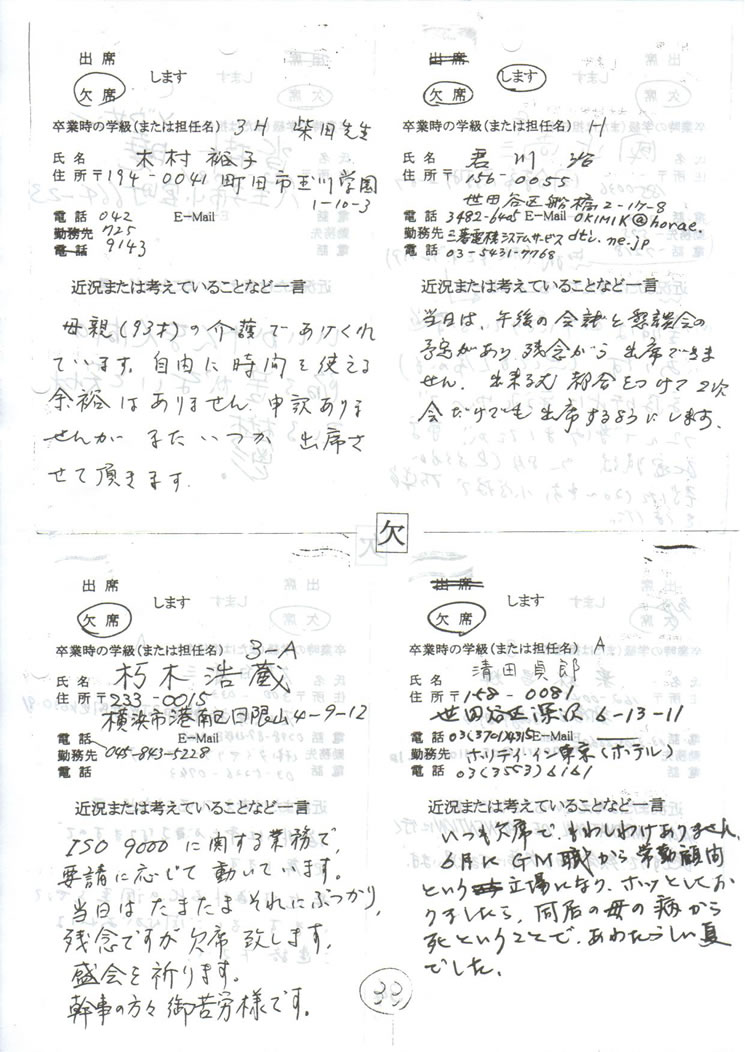 出 席
欠 席
します
卒業時の学級(または担任名) 3H 柴田先生
氏 名 木村 裕子
住 所 〒194-0041 町田市玉川学園
1-10-3
電 話 042 E-Mail
勤務先 725
電 話 9143
近況または考えていることなど一言
母親(93才)の介護であけくれ
ています。自由に時間を使える
余裕はありません 申訳ありま
せんが またいつか 出席さ
せて頂きます.
出 席
欠 席
します
卒業時の学級(または担任名) H
氏 名 君川 治
住 所 〒156-0055
世田谷区船橋2-17-8
電 話 3482-6405 E-Mail OKIMIK@horae.
勤務先 三菱電機システムサービス dti.ne.jp
電 話 03-5431-7768
近況または考えていることなど一言
当日は、午後の会議と懇談会の
予定があり残念がら出席できま
せん. 出来る丈 都合をつけて2次
会だけでも出席するようにします.
欠
出 席
欠 席
します
卒業時の学級(または担任名) 3-A
氏 名 朽木 浩蔵
住 所 〒233-0015
横浜市港南区日限山4-9-12
電 話 E-Mail
勤務先 045-843-5228
電 話
近況または考えていることなど一言
ISO 9000 に関する業務で,
要請に応じて動いています。
当日は たまたま それにぶつかり,
残念ですが欠席致します.
盛会を祈ります。
幹事の方々御苦労様です。
出 席
欠 席
します
卒業時の学級(または担任名) A
氏 名 清田 貞郎
住 所 〒158-0081
世田谷区深沢 6-13-11
電 話 03(3701)4315 E-Mail
勤務先 ホリデイ・イン東京(ホテル)
電 話 03(3553)6161
近況または考えていることなど一言
いつも欠席で、もうしわけありません.
6月にGM職から常勤顧問
という立場になり、ホッとしてお
りましたら、同居の母の病から
死ということで、あわただしい夏
でした.
33